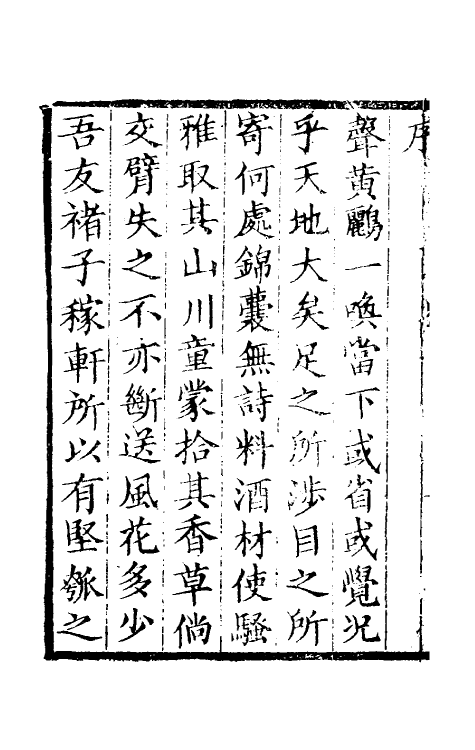 序
聲黃鸝一喚當下或省或覺況
乎天地大矣足之所涉目之所
寄何處錦囊無詩料酒材使騷
雅取其山川童蒙拾其香草倘
交臂失之不亦斷送風花多少
吾友褚子稼軒所以有堅瓠之